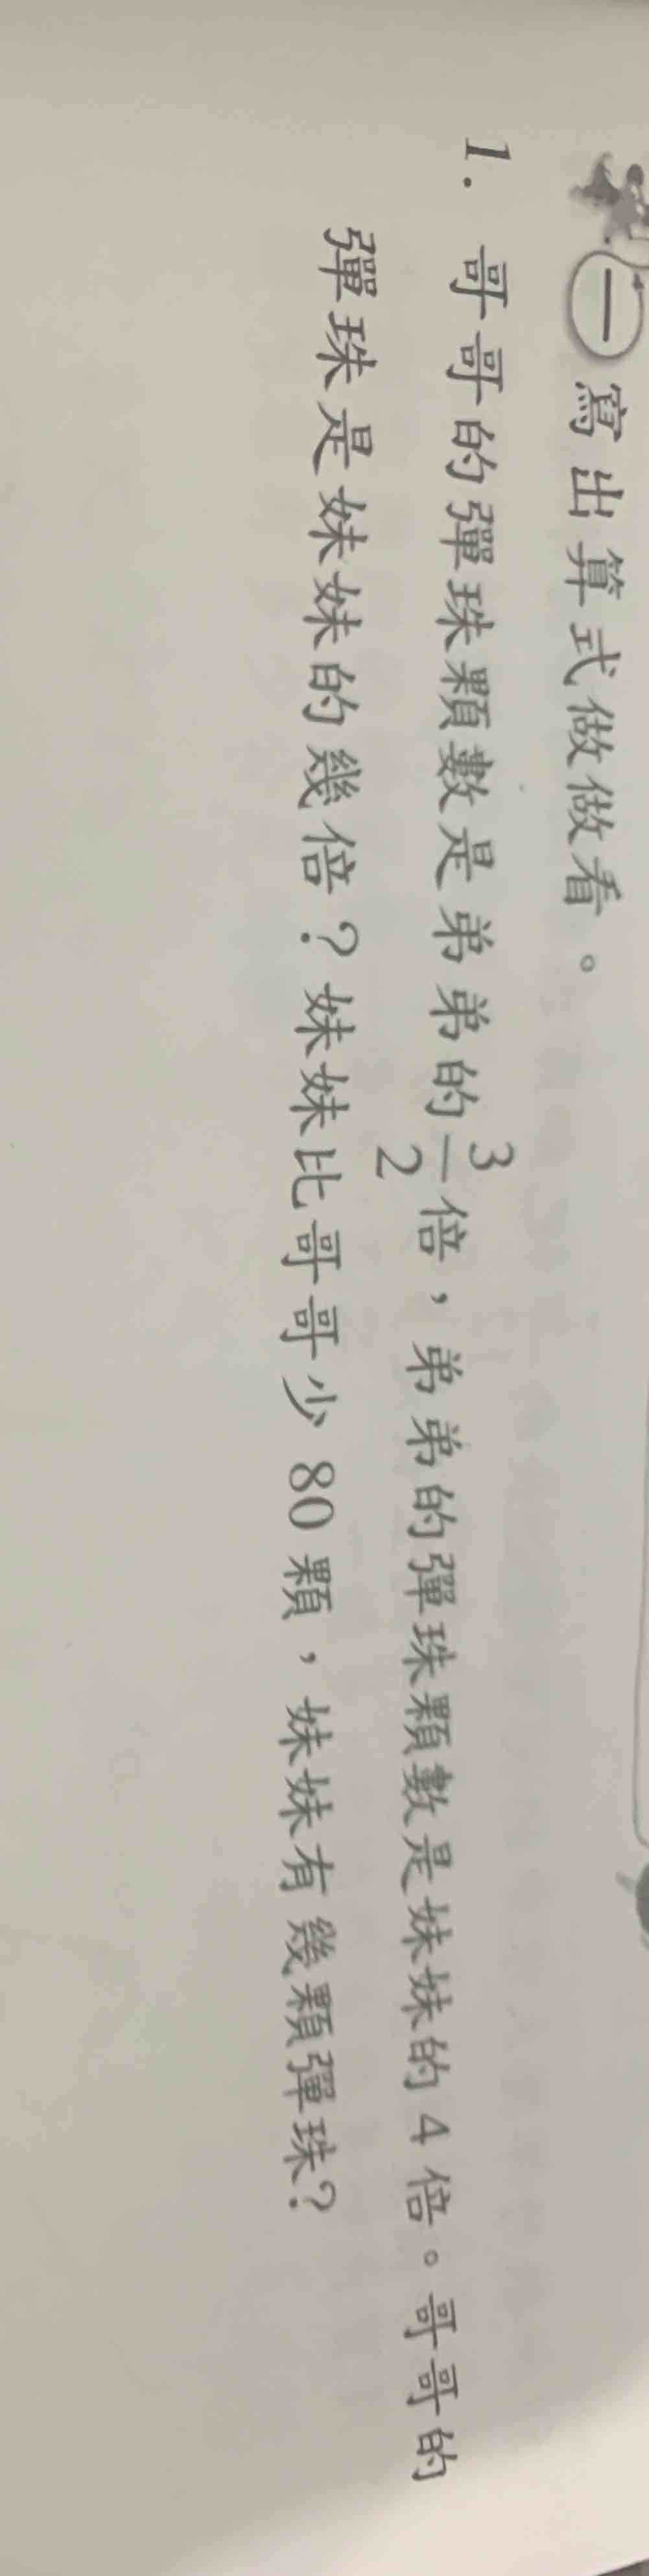 一 寫出算式做做看。
1. 哥哥的彈珠顆數是弟弟的 3/2 倍,弟弟的彈珠顆數是妹妹的 4 倍。哥哥的
彈珠是妹妹的幾倍?妹妹比哥哥少 80 顆,妹妹有幾顆彈珠?